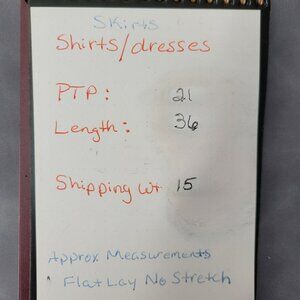 Skirts
Shirts/dresses
PTP: 21
Length: 36
Shipping wt 15
Approx Measurements
Flat Lay No Stretch